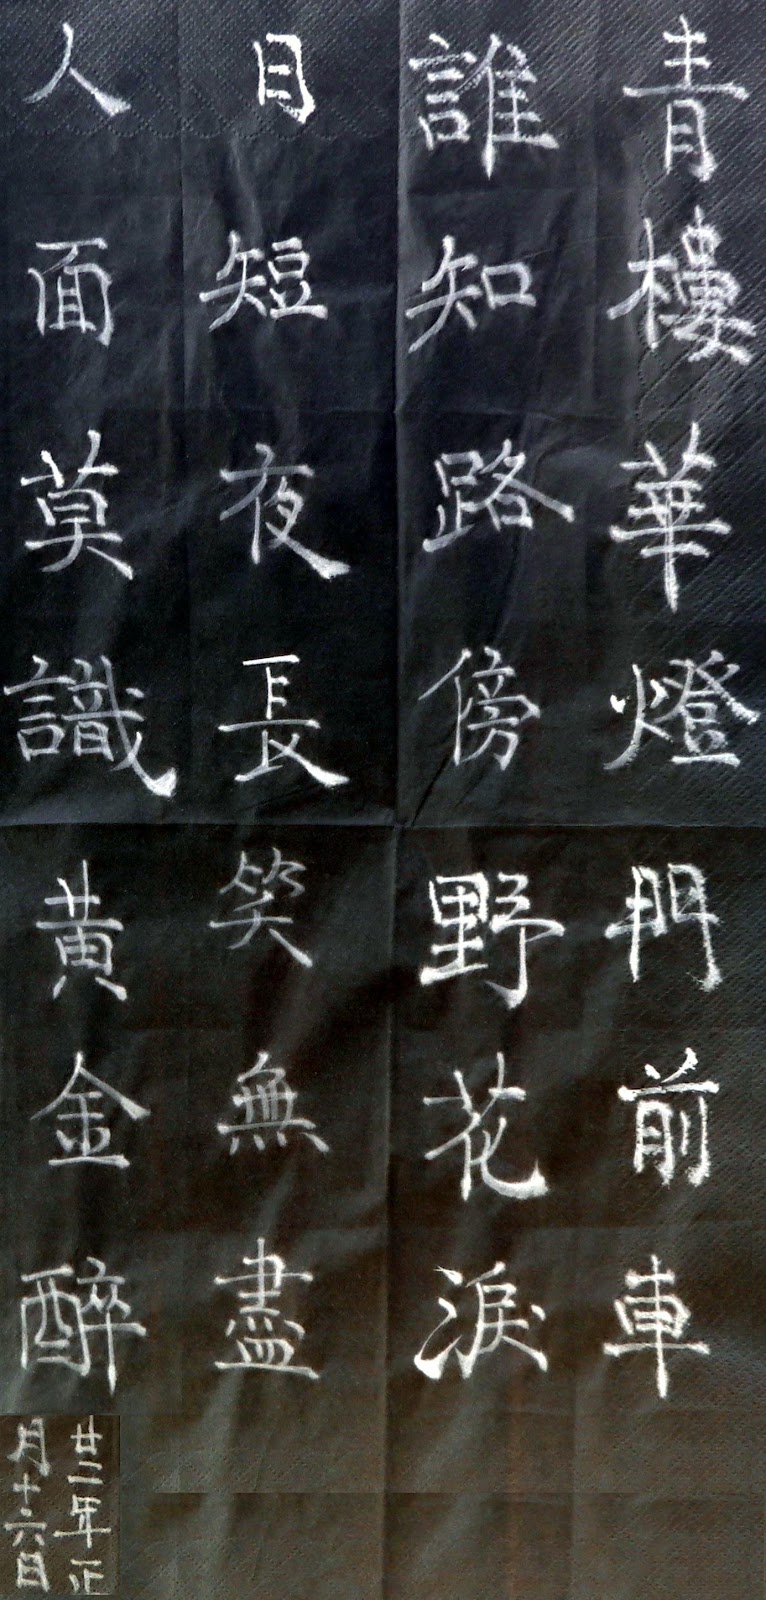 青樓華燈門前車
誰知路傍野花淚
目短夜長笑無盡
人面莫識黄金醉
廿二年正
月十六日